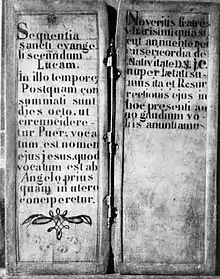 Sequentia
sancti evange
li secundum
Lucam.
in illo tempore
Postquam con
summati sunt
dies octo, ut
circuncidere
tur Puer: voca
tum est nomen
ejus jesus, quod
vocatum est ab
Angelo, prius
quam in utero
conciperetur.
Noveritis fratres
charissimi quia si
cut annuente Dei
misericordia de
Nativitate D.N. j.C.
nuper lætati su
mus ita et Resur
rectionis ejus in
hoc presenti an
no gaudium vo
bis anuntiamus